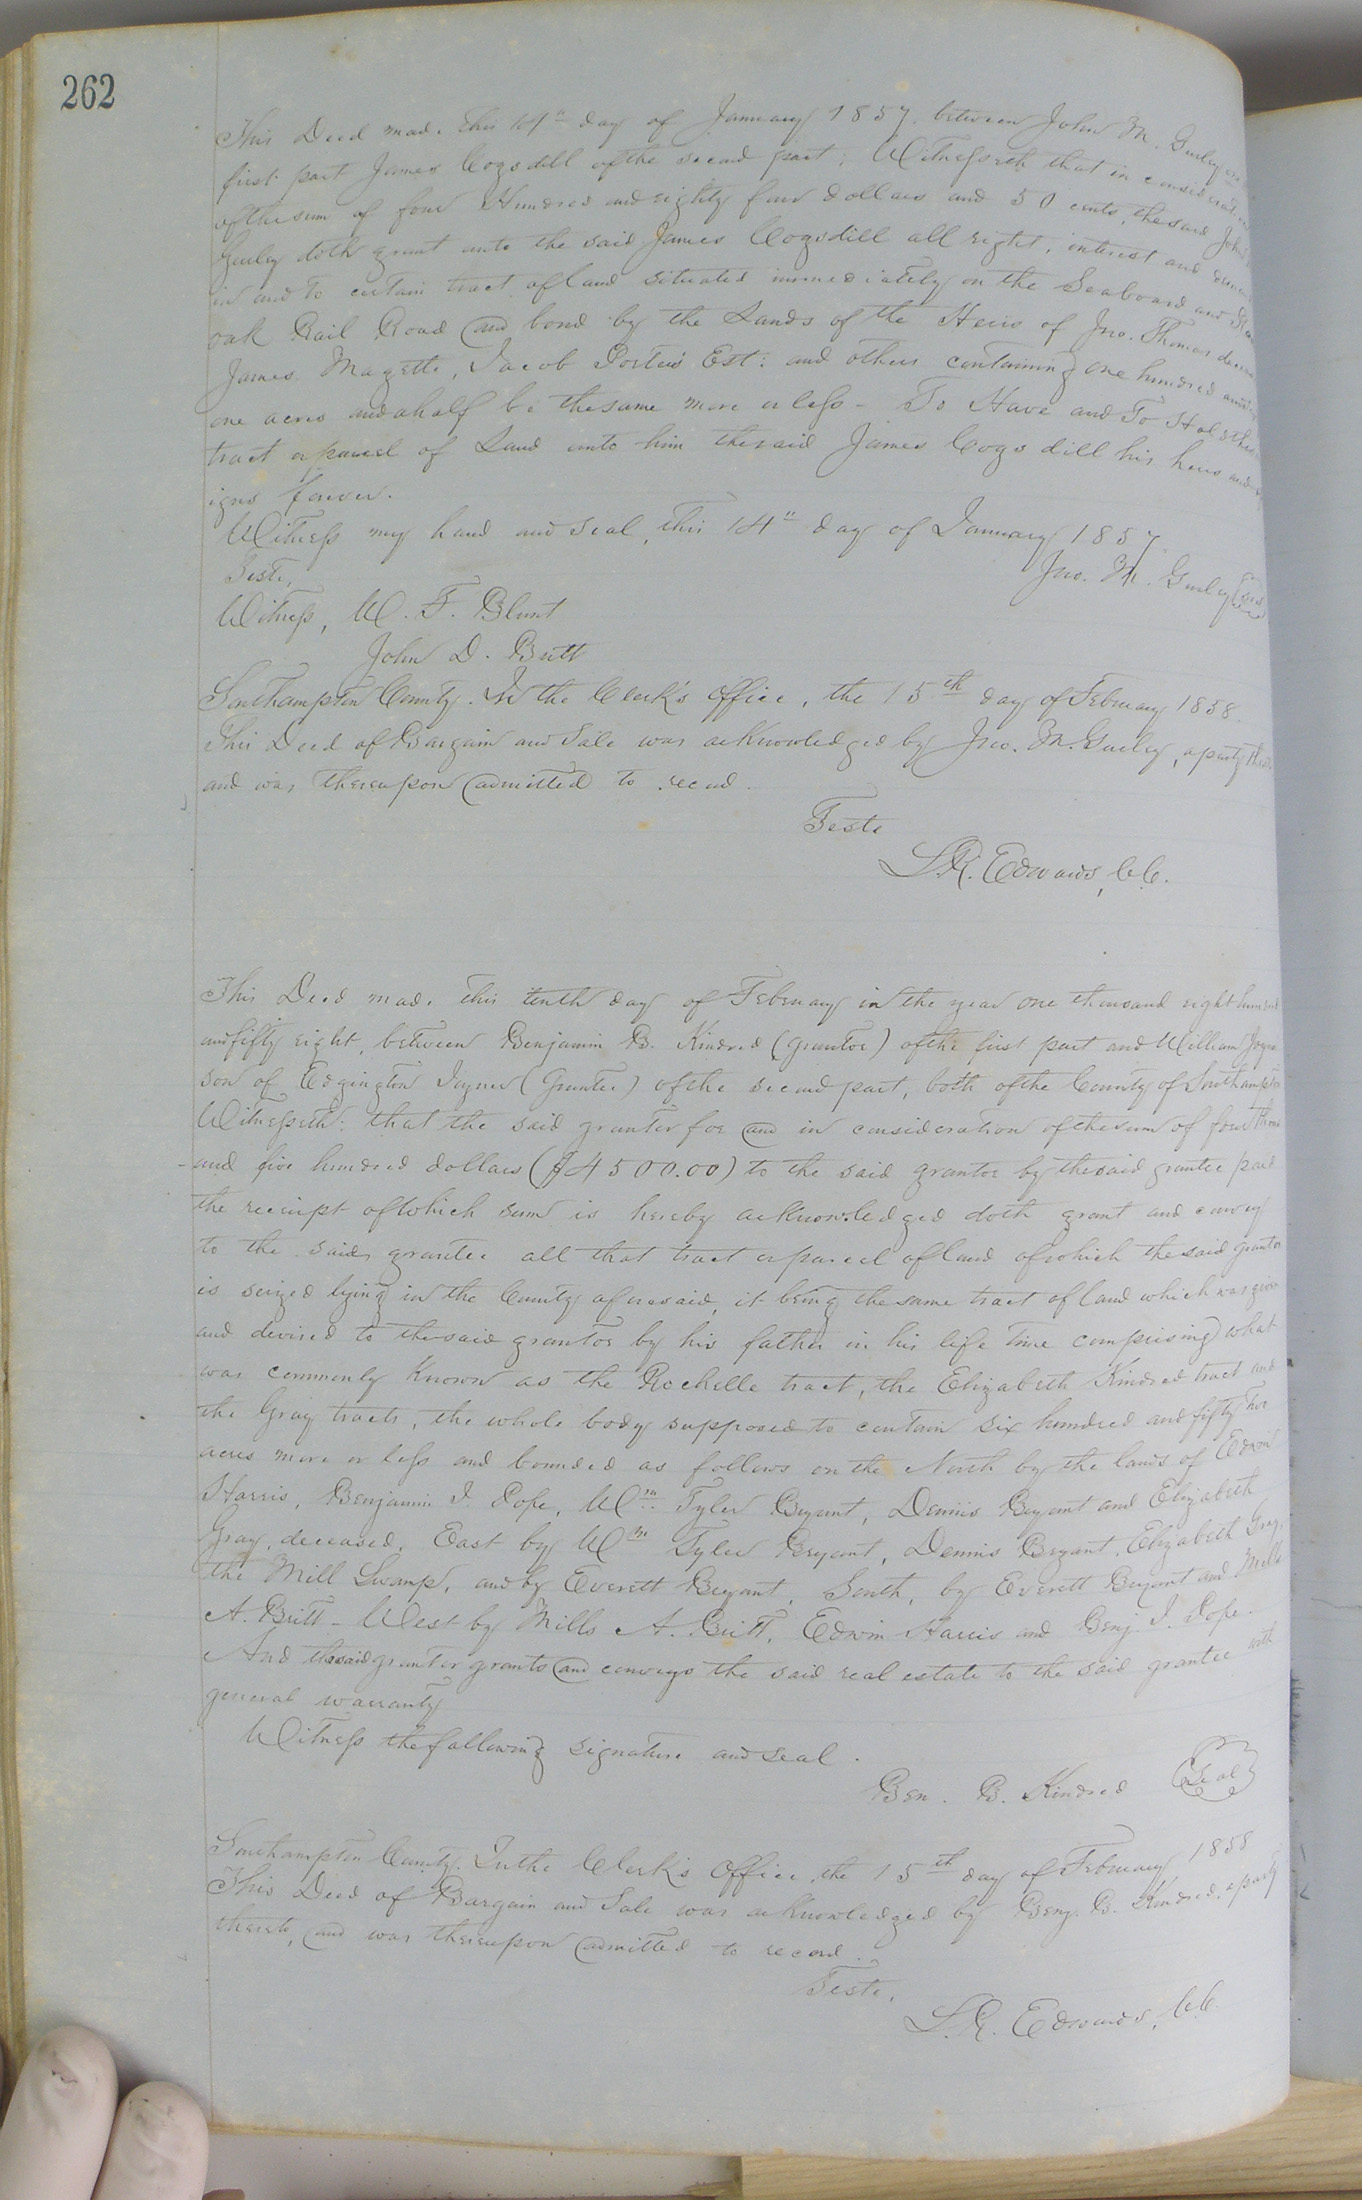 262
This Deed made this 14th day of January 1857, between John M. Gurley
first part James Cogsdill of the second part; Witnesseth that in
of the sum of four Hundred and eighty four dollars and 50 cents, the said John
Gurley doth grant unto the said James Cogsdill all right, interest and
in and to certain tract of land situated immediately on the Seaboard and
oak Rail Road and bond by the Lands of the Heirs of Jno. Thomas
James Magette, Jacob Porter's Est: and others containing one hundred and
one acres and a half be the same more or less - To Have and To Hold
tract or parcel of Land unto him the said James Cogsdill his heirs and
igns forever.
Witness my hand and seal, this 14" day of January 1857
Jno. M. Gurley Seal
Teste,
Witness, W. F. Blunt
John D. Britt
Southampton County. In the Clerk's Office, the 15th day of February 1858.
This Deed of Bargain and Sale was acknowledged by Jno. M. Gurley, a party
and was thereupon admitted to record.
Teste
L.R. Edwards, C.C.
This Deed made this tenth day of February in the year one thousand eight hundred
and fifty eight, between Benjamin B. Kindred (grantor) of the first part and William
son of Edgington Joyner (Grantee) of the second part, both of the County of Southampton
Witnesseth: that the said grantor for and in consideration of the sum of four
and five hundred dollars ($4500.00) to the said grantor by the said grantee paid
the receipt of which sum is hereby acknowledged doth grant and convey
to the said grantee all that tract or parcel of land of which the said grantor
is seized lying in the County aforesaid, it being the same tract of land which was given
and devised to the said grantor by his father in his life time comprising what
was commonly known as the Rochelle tract, the Elizabeth Kindred tract and
the Gray tracts, the whole body supposed to contain six hundred and fifty
acres more or less and bounded as follows on the North by the lands of Edwin
Harris, Benjamin J. Pope, Wm Tyler Bryant, Dennis Bryant and Elizabeth
Gray, deceased, East by Wm Tyler Bryant, Dennis Bryant, Elizabeth Gray,
the Mill Swamp, and by Everett Bryant, South, by Everett Bryant and Mills
A. Britt - West by Mills A. Britt, Edwin Harris and Benj. J. Pope -
And the said grantor grants and conveys the said real estate to the said grantee with
general warranty
Witness the following signature and seal.
Ben. B. Kindred Seal
Southampton County. In the Clerk's Office, the 15th day of February 1858
This Deed of Bargain and Sale was acknowledged by Benj. B. Kindred, a party
thereto, and was thereupon admitted to record.
Teste,
L.R. Edwards, C.C.